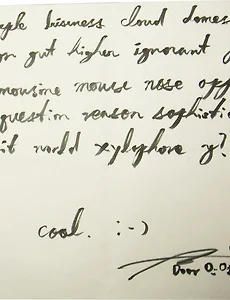 business cloud domes
gut higher ignorant
mouse nose opp
question reason sophistic
it world xylophone y?
cool. :-)
Door